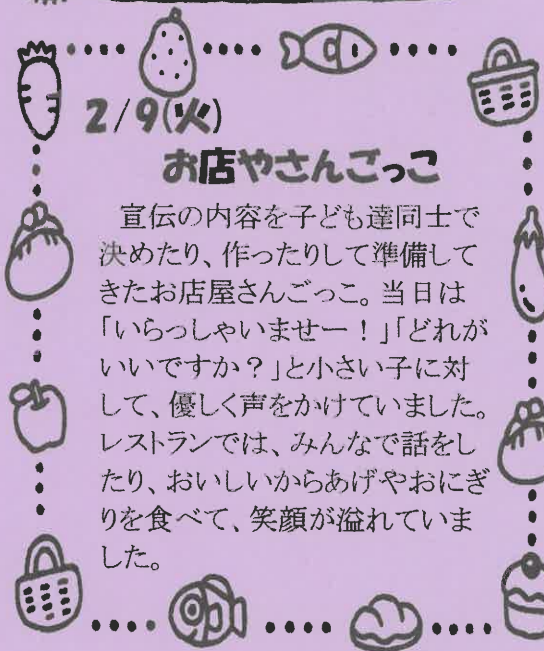 2/9(火)
お店やさんごっこ
宣伝の内容を子ども達同士で
決めたり、作ったりして準備して
きたお店屋さんごっこ。当日は
「いらっしゃいませー！」「どれが
いいですか？」と小さい子に対
して、優しく声をかけていました。
レストランでは、みんなで話をし
たり、おいしいからあげやおにぎ
りを食べて、笑顔が溢れていま
した。